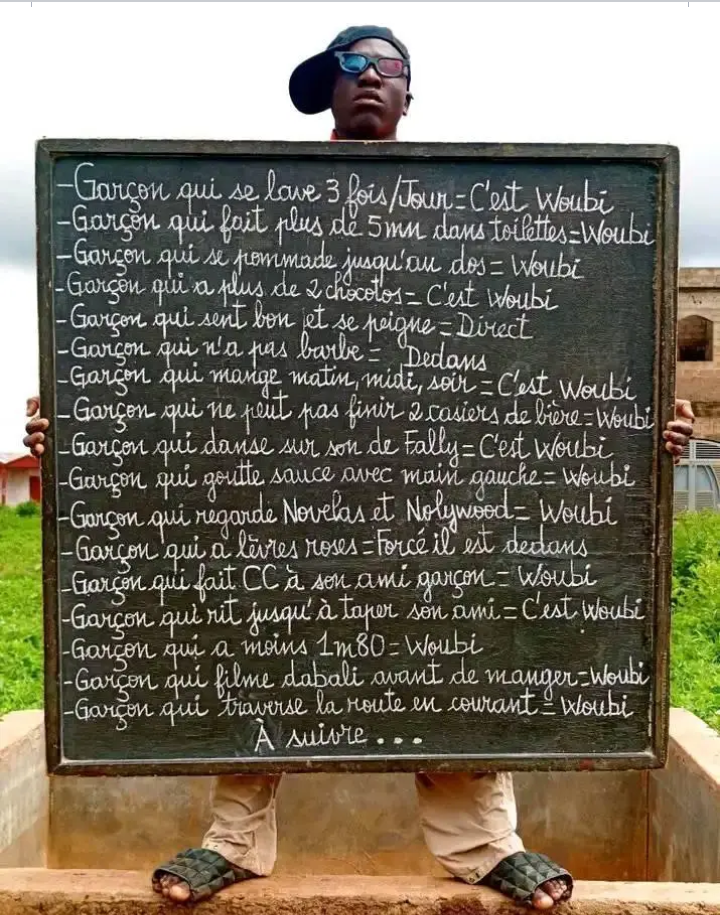 -Garçon qui se lave 3 fois/Jour=C'est Woubi
-Garçon qui fait plus de 5mn dans toilettes=Woubi
-Garçon qui se pommade jusqu'au dos= Woubi
-Garçon qui a plus de 2 chocotos= C'est Woubi
-Garçon qui sent bon et se peigne = Direct
-Garçon qui n'a pas barbe = Dedans
-Garçon qui mange matin, midi, soir = C'est Woubi
-Garçon qui ne peut pas finir 2 casiers de bière=Woubi
-Garçon qui danse sur son de Fally=C'est Woubi
-Garçon qui goutte sauce avec main gauche= Woubi
-Garçon qui regarde Novelas et Nolywood= Woubi
-Garçon qui a lèvres roses=Forcé il est dedans
-Garçon qui fait CC à son ami garçon = Woubi
-Garçon qui rit jusqu'à taper son ami = C'est Woubi
-Garçon qui a moins 1m80=Woubi
-Garçon qui filme dabali avant de manger=Woubi
-Garçon qui traverse la route en courant = Woubi
À suivre...